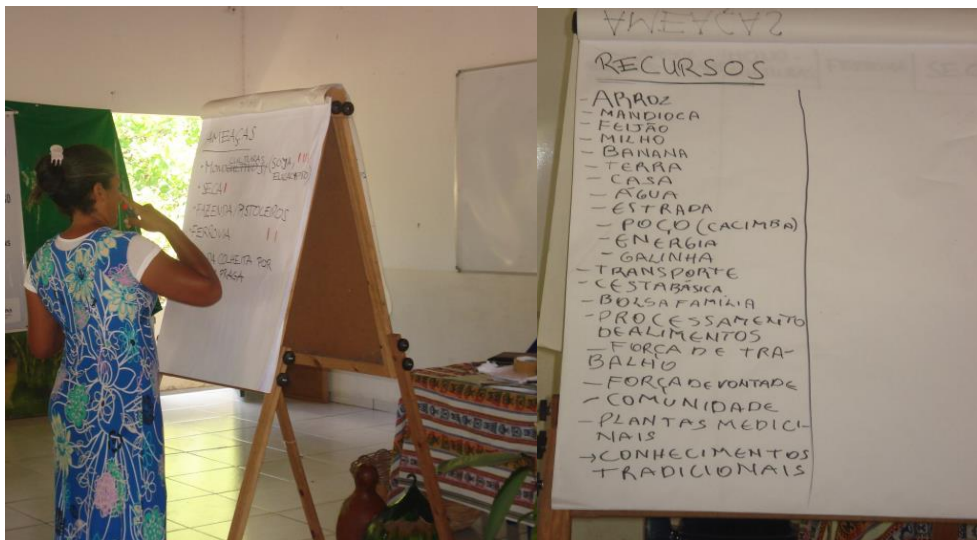 AMEAÇAS
- MONOCULTURAS (SOJA,
EUCALIPTO)
- SECA
- FAZENDA/PISTOLEIROS
- FERROVIA
DA COLHEITA POR
PRAGA
AMEAÇAS
RECURSOS
- ARROZ
- MANDIOCA
- FEIJÃO
- MILHO
- BANANA
- TERRA
- CASA
- ÁGUA
- ESTRADA
- POÇO (CACIMBA)
- ENERGIA
- GALINHA
- TRANSPORTE
- CESTA BÁSICA
- BOLSA FAMÍLIA
- PROCESSAMENTO
DE ALIMENTOS
- FORÇA DE TRA-
BALHO
- FORÇA DE VONTADE
- COMUNIDADE
- PLANTAS MEDICI-
NAIS
→ CONHECIMENTOS
TRADICIONAIS